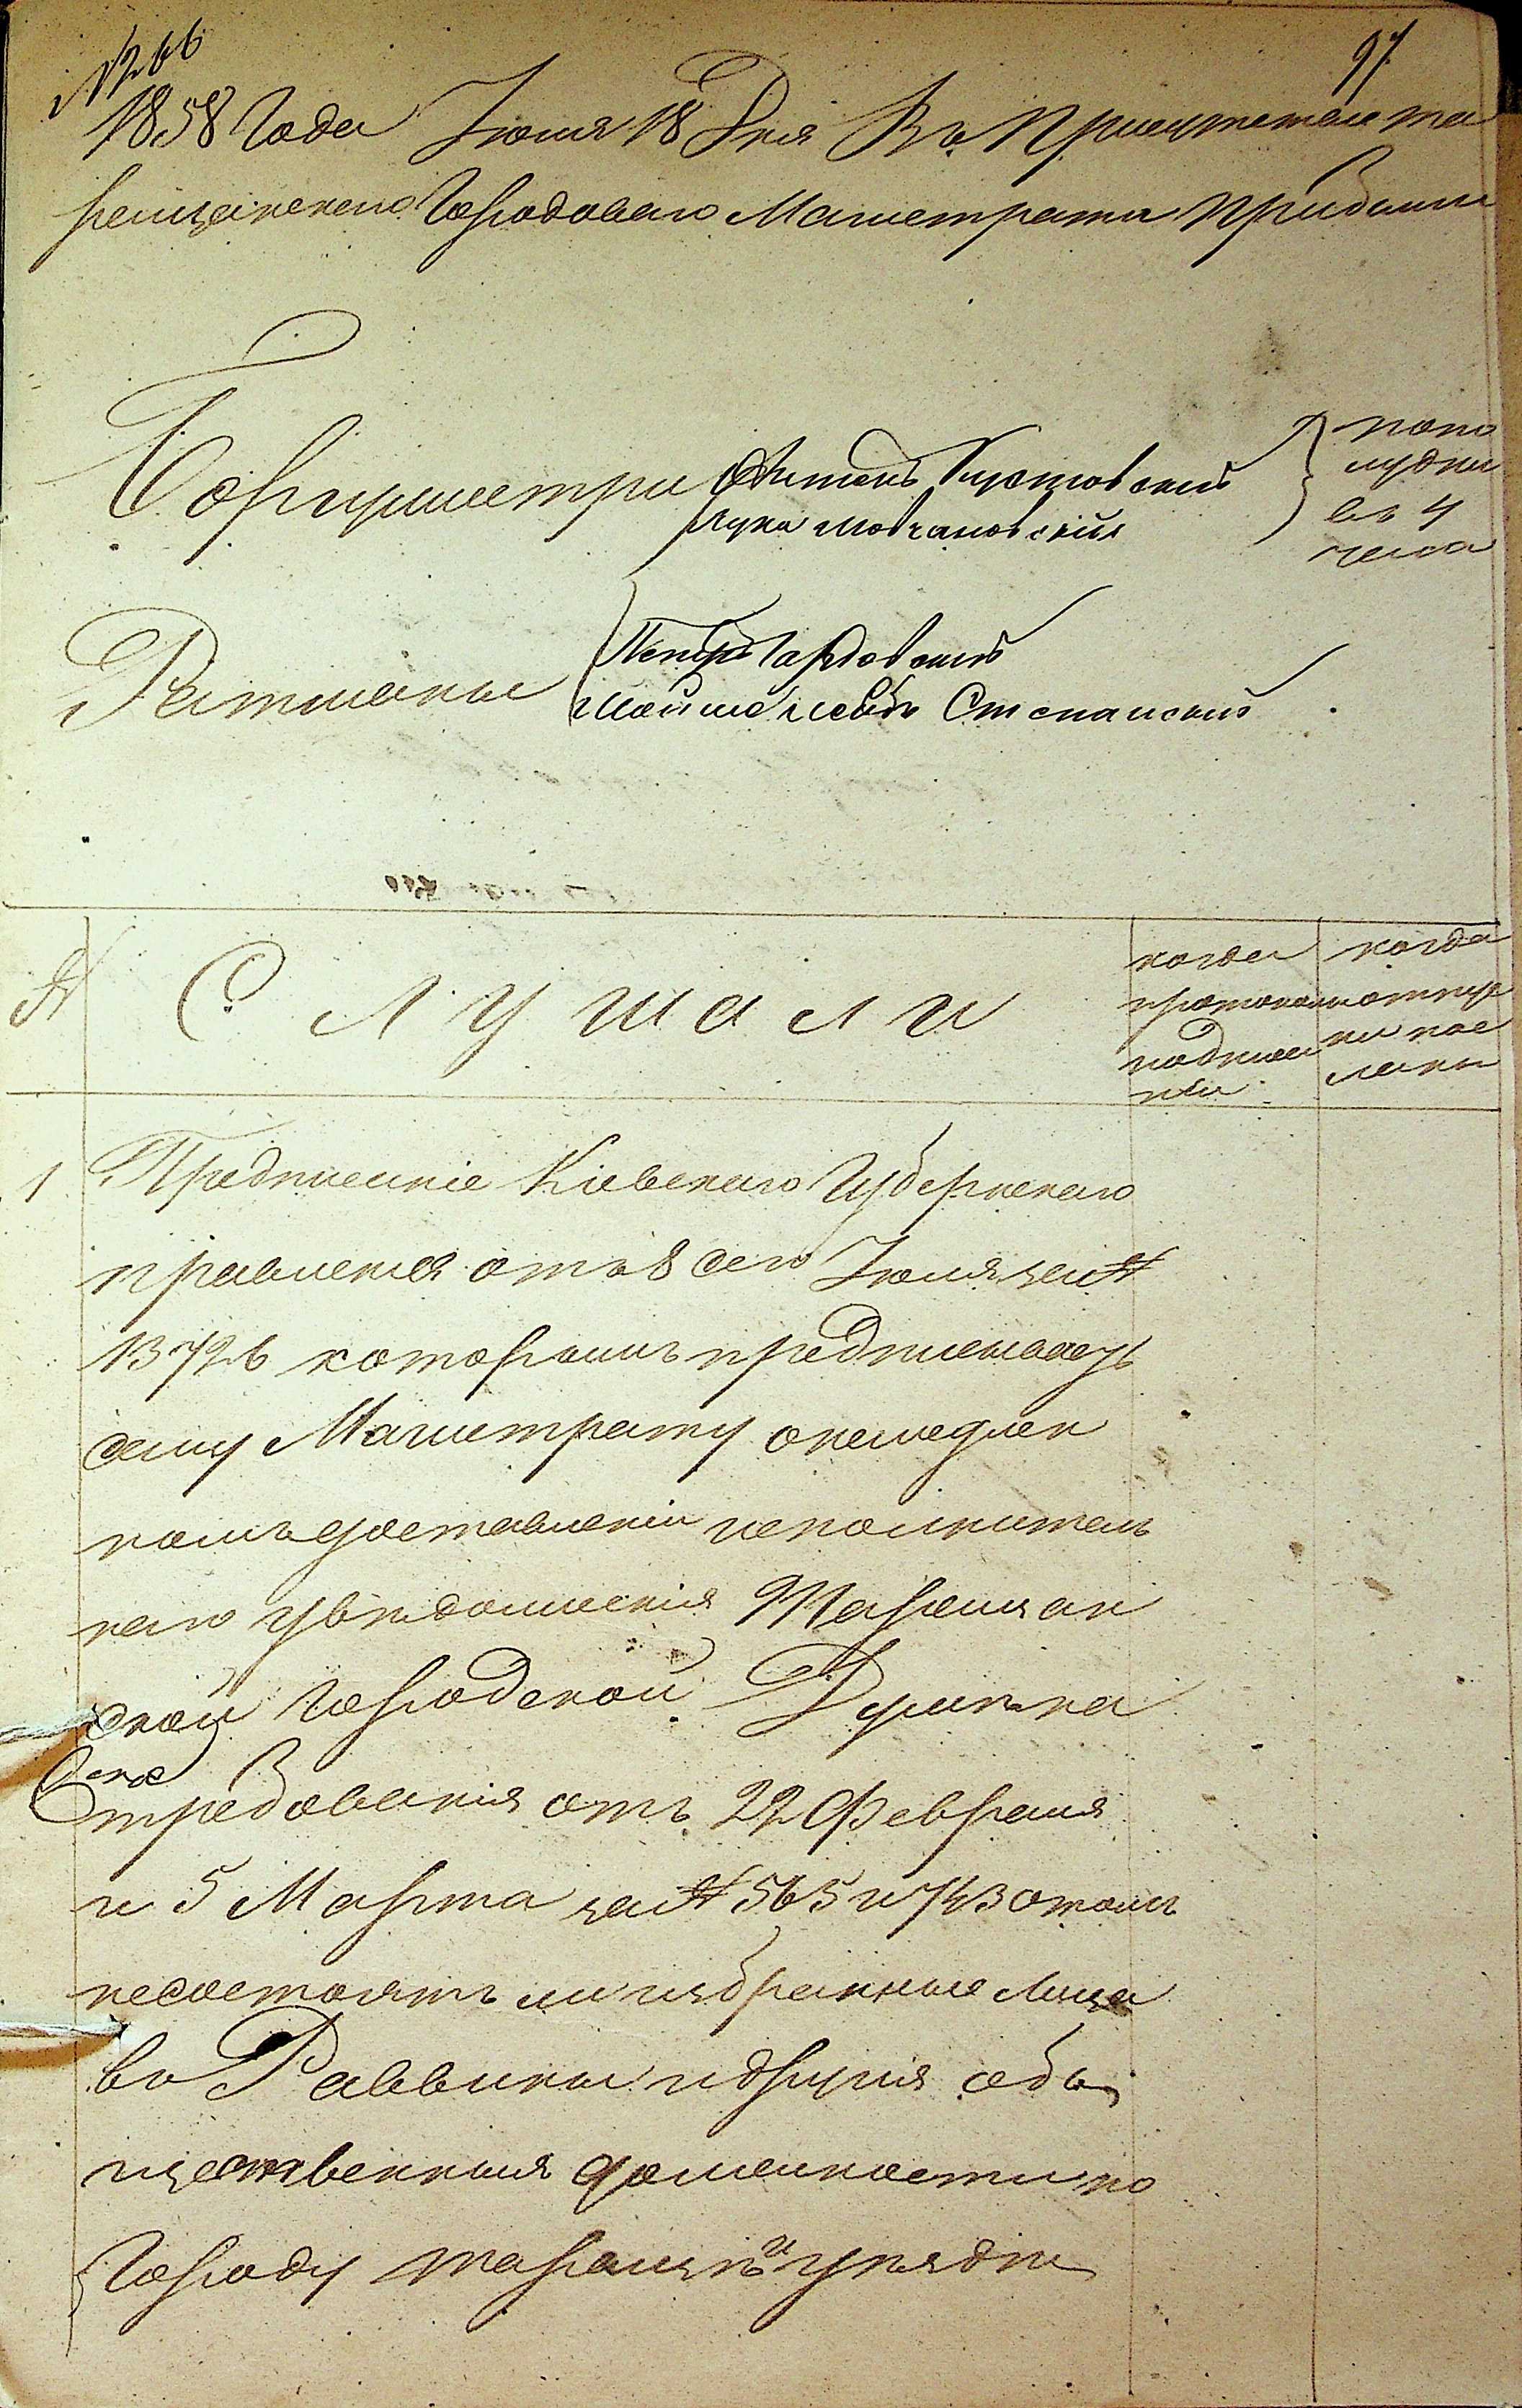 № 66
97
1858 Года Июля 18 Дня Въ Присутствие Та
ращанскаго Городоваго Магистрата прибыли
Бургумистри
Антонъ Бустовский
Лука Мовчановский
попо
лудни
въ 4
часа
Ратманы
Петръ Гардовский
Степанский
№
С л у ш а л и
когда
протоколъ
подписа
нъ
когда
отпус
ки пос
ланы
1 Предписание Кіевскаго Губернскаго
правления отъ 8 сего Июля за №
13726 которымъ предписываетъ
сему Магистрату о немедлен
номъ доставленіи исполнитель
наго увѣдомленія Таращан
ской Городской Думѣ на
требованія отъ 22 Февраля
и 5 Марта за № 565 и 743 о томъ
несостоятъ ли избранные лица
въ Раввины и другія об
щественныя должности по
Городу Таращѣ и уѣзду